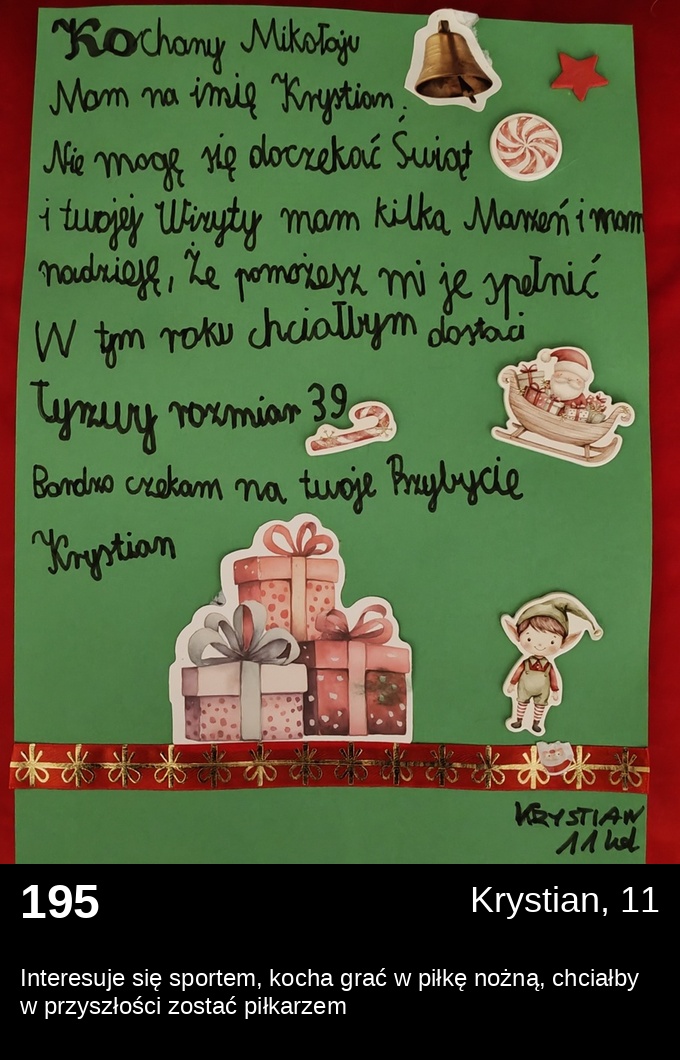 Kochany Mikołaju
Mam na imię Krystian.
Nie mogę się doczekać Świąt
i twojej Wizyty mam kilka Marzeń i mam
nadzieję, Że pomożesz mi je spełnić
W tym roku chciałbym dostaci
Łyzwy rozmiar 39
Bardzo czekam na twoje Przybycie
Krystian
KRYSTIAN
11 lat
195
Krystian, 11
Interesuje się sportem, kocha grać w piłkę nożną, chciałby
w przyszłości zostać piłkarzem